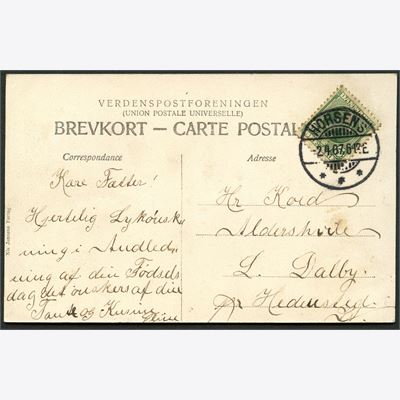 VERDENSPOSTFORENINGEN
(UNION POSTALE UNIVERSELLE)
BREVKORT — CARTE POSTALE
HORSENS
2.4.07.
Correspondance
Adresse
Kære Fætter!
Hjertelig Lykønsk
ning i Andled
ning af din Fødsels
dag det ønskers af din
Tante og Kusine
Hr
L. Dalby.
pr Hedensted.